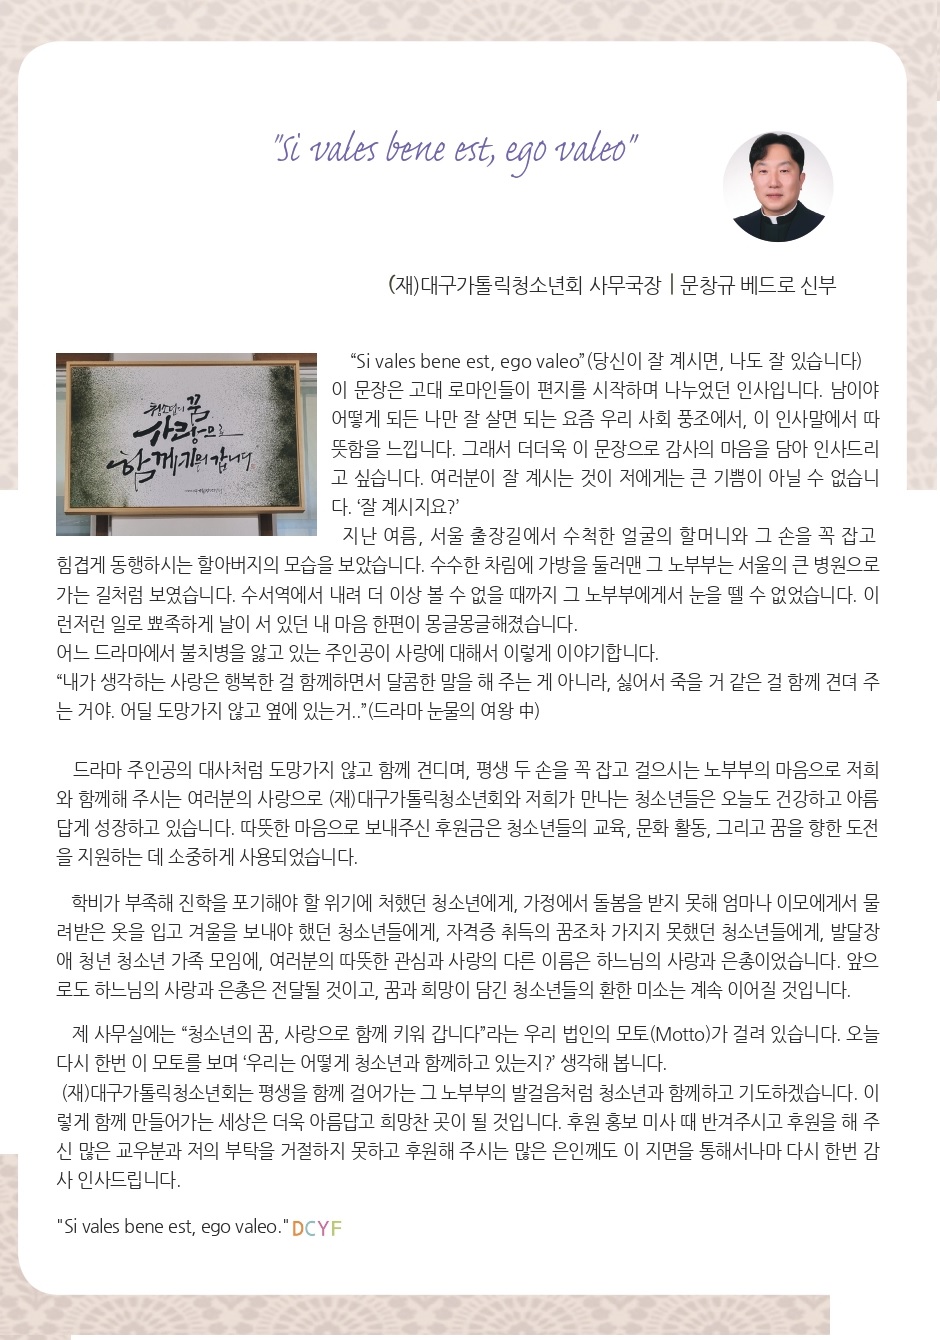 "Si vales bene est, ego valeo"
(재)대구가톨릭청소년회 사무국장 | 문창규 베드로 신부
청소년의 꿈
사랑으로
함께 키워 갑니다
“Si vales bene est, ego valeo”(당신이 잘 계시면, 나도 잘 있습니다)
이 문장은 고대 로마인들이 편지를 시작하며 나누었던 인사입니다. 남이야
어떻게 되든 나만 잘 살면 되는 요즘 우리 사회 풍조에서, 이 인사말에서 따
뜻함을 느낍니다. 그래서 더더욱 이 문장으로 감사의 마음을 담아 인사드리
고 싶습니다. 여러분이 잘 계시는 것이 저에게는 큰 기쁨이 아닐 수 없습니
다. ‘잘 계시지요?’
지난 여름, 서울 출장길에서 수척한 얼굴의 할머니와 그 손을 꼭 잡고
힘겹게 동행하시는 할아버지의 모습을 보았습니다. 수수한 차림에 가방을 둘러맨 그 노부부는 서울의 큰 병원으로
가는 길처럼 보였습니다. 수서역에서 내려 더 이상 볼 수 없을 때까지 그 노부부에게서 눈을 뗄 수 없었습니다. 이
런저런 일로 뾰족하게 날이 서 있던 내 마음 한편이 몽글몽글해졌습니다.
어느 드라마에서 불치병을 앓고 있는 주인공이 사랑에 대해서 이렇게 이야기합니다.
“내가 생각하는 사랑은 행복한 걸 함께하면서 달콤한 말을 해 주는 게 아니라, 싫어서 죽을 거 같은 걸 함께 견뎌 주
는 거야. 어딜 도망가지 않고 옆에 있는거..”(드라마 눈물의 여왕 中)
드라마 주인공의 대사처럼 도망가지 않고 함께 견디며, 평생 두 손을 꼭 잡고 걸으시는 노부부의 마음으로 저희
와 함께해 주시는 여러분의 사랑으로 (재)대구가톨릭청소년회와 저희가 만나는 청소년들은 오늘도 건강하고 아름
답게 성장하고 있습니다. 따뜻한 마음으로 보내주신 후원금은 청소년들의 교육, 문화 활동, 그리고 꿈을 향한 도전
을 지원하는 데 소중하게 사용되었습니다.
학비가 부족해 진학을 포기해야 할 위기에 처했던 청소년에게, 가정에서 돌봄을 받지 못해 엄마나 이모에게서 물
려받은 옷을 입고 겨울을 보내야 했던 청소년들에게, 자격증 취득의 꿈조차 가지지 못했던 청소년들에게, 발달장
애 청년 청소년 가족 모임에, 여러분의 따뜻한 관심과 사랑의 다른 이름은 하느님의 사랑과 은총이었습니다. 앞으
로도 하느님의 사랑과 은총은 전달될 것이고, 꿈과 희망이 담긴 청소년들의 환한 미소는 계속 이어질 것입니다.
제 사무실에는 “청소년의 꿈, 사랑으로 함께 키워 갑니다”라는 우리 법인의 모토(Motto)가 걸려 있습니다. 오늘
다시 한번 이 모토를 보며 ‘우리는 어떻게 청소년과 함께하고 있는지?’ 생각해 봅니다.
(재)대구가톨릭청소년회는 평생을 함께 걸어가는 그 노부부의 발걸음처럼 청소년과 함께하고 기도하겠습니다. 이
렇게 함께 만들어가는 세상은 더욱 아름답고 희망찬 곳이 될 것입니다. 후원 홍보 미사 때 반겨주시고 후원을 해 주
신 많은 교우분과 저의 부탁을 거절하지 못하고 후원해 주시는 많은 은인께도 이 지면을 통해서나마 다시 한번 감
사 인사드립니다.
"Si vales bene est, ego valeo." DCYF